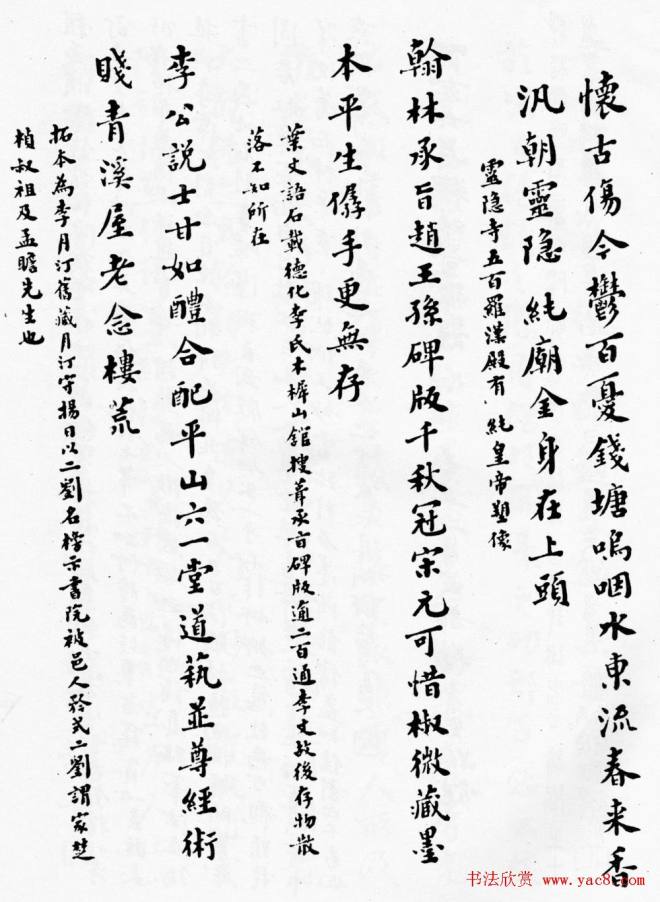 懷古傷今鬱百憂錢塘嗚咽水東流春来香
汎朝靈隐純廟金身在上頭
靈隐寺五百羅漢殿有 純皇帝塑像
翰林承旨趙王孫碑版千秋冠宋元可惜椒微藏墨
本平生手更無存
葉丈語石載德化李氏木樨山舘搜承旨碑版逾二百通李丈故後存物散
落不知所在
李公説士甘如醴合配平山六一堂道蓺並尊經術
賤青溪屋老念樓荒
拓本為李月汀舊藏月汀守揚日以二劉名楷示書院被邑人矜式二劉謂家楚
楨叔祖及孟瞻先生也
书法欣赏 www.yac8.com